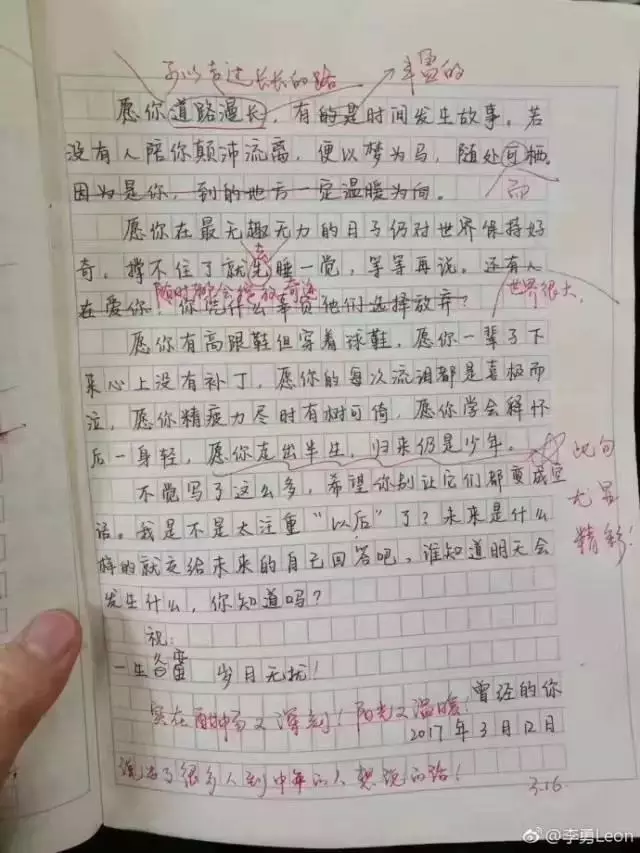 可以走过长长的路 丰富的
愿你道路漫长，有的是时间发生故事。若
没有人陪你颠沛流离，便以梦为马，随处可栖。
因为是你，到的地方一定温暖为向。
而
愿你在最无趣无力的日子仍对世界保持好
奇，撑不住了就先睡一觉，等等再说。还有人
去
随时都会绽放奇迹
世界很大，
在爱你！你凭什么辜负他们选择放弃？
愿你有高跟鞋但穿着球鞋，愿你一辈子下
来心上没有补丁，愿你的每次流泪都是喜极而
泣，愿你精疲力尽时有树可倚，愿你学会释怀
后一身轻，愿你走出半生，归来仍是少年。
此句
尤显
精彩！
不觉写了这么多，希望你别让它们都变成空
话。我是不是太注重“以后”了？未来是什么
样的就交给未来的自己回答吧，谁知道明天会
发生什么，你知道吗？
祝：
一生 岁月无扰！
曾经的你
实在酣畅又深刻！阳光又温暖！
2017年3月12日
说出了很多人到中年的人想说的话！
3.16
@李勇Leon